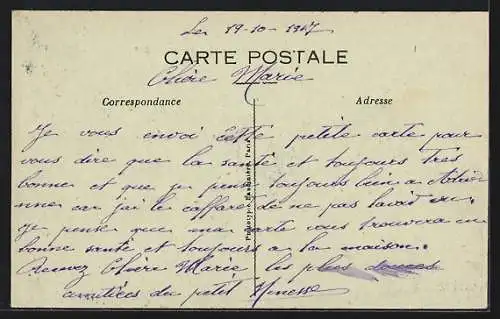 Le 19-10-1917
CARTE POSTALE
Chère Marie
Correspondance
Adresse
Je vous envoi cette petite carte pour
vous dire que la santé et toujours tres
bonne et que je pense toujours bien a
car j'ai le caffard de ne pas lavoir vu.
Je pense que ma carte vous trouvera en
bonne santé et toujours a la maison.
Recevez Chère Marie les plus douces
amitiées du petit Nenesse
Phototypie Baudinière, Paris